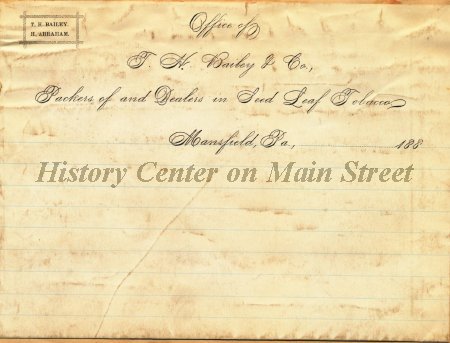 T. H. BAILEY.
H. ABRAHAM.
Office of
T. H. Bailey & Co.,
Packers of and Dealers in Seed Leaf Tobacco
Mansfield, Pa., 188
History Center on Main Street